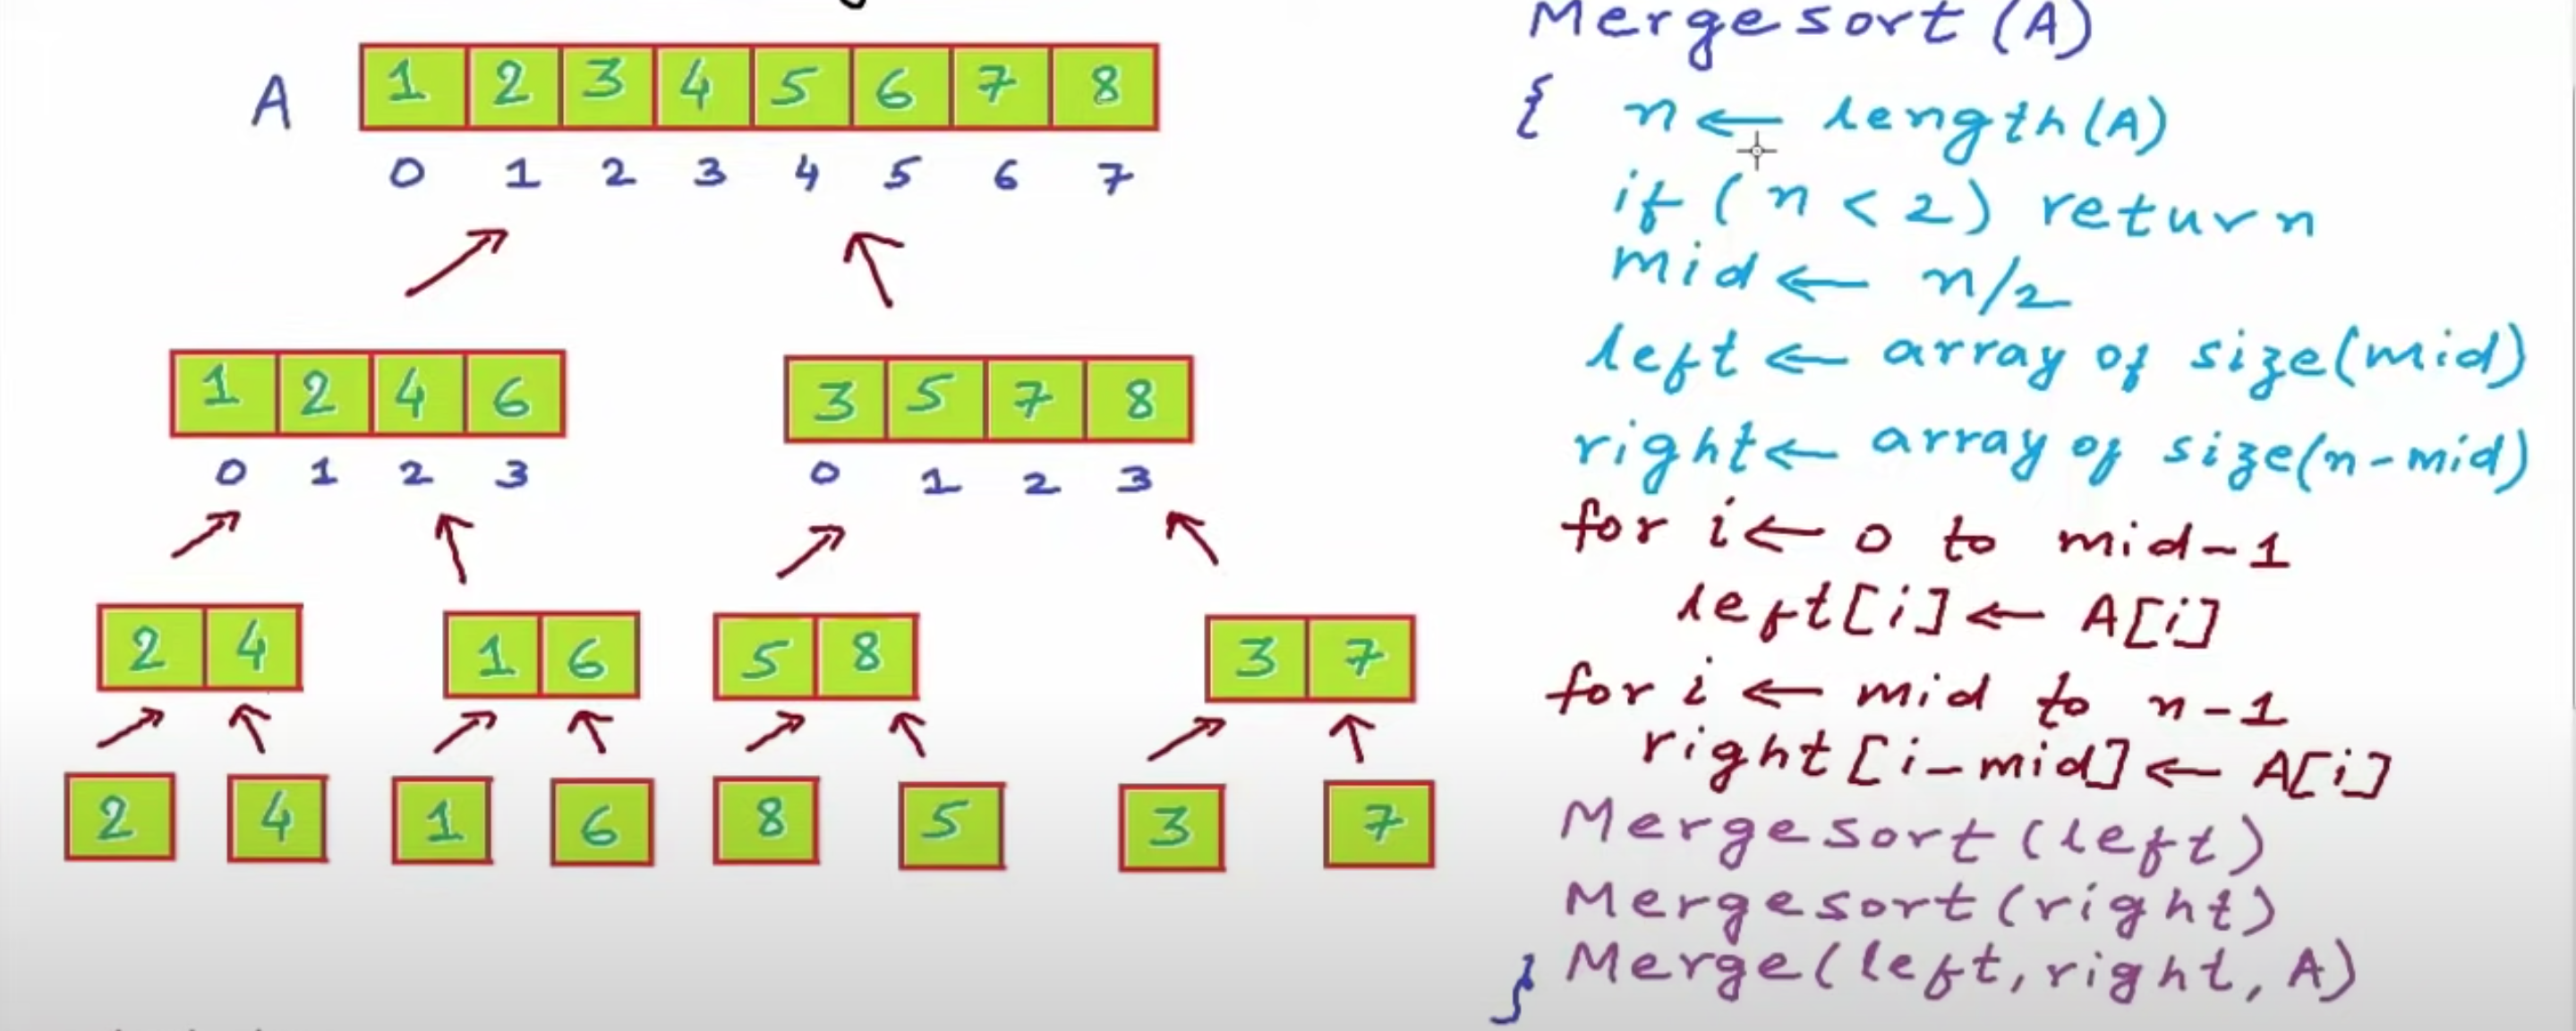 A
1 2 3 4 5 6 7 8
0 1 2 3 4 5 6 7
1 2 4 6
0 1 2 3
3 5 7 8
0 1 2 3
2 4
1 6
5 8
3 7
2 4 1 6 8 5 3 7
Mergesort (A)
{ n ← length(A)
if (n < 2) return
mid ← n/2
left ← array of size(mid)
right ← array of size(n-mid)
for i ← 0 to mid-1
left[i] ← A[i]
for i ← mid to n-1
right[i-mid] ← A[i]
Mergesort (left)
Mergesort (right)
} Merge(left, right, A)